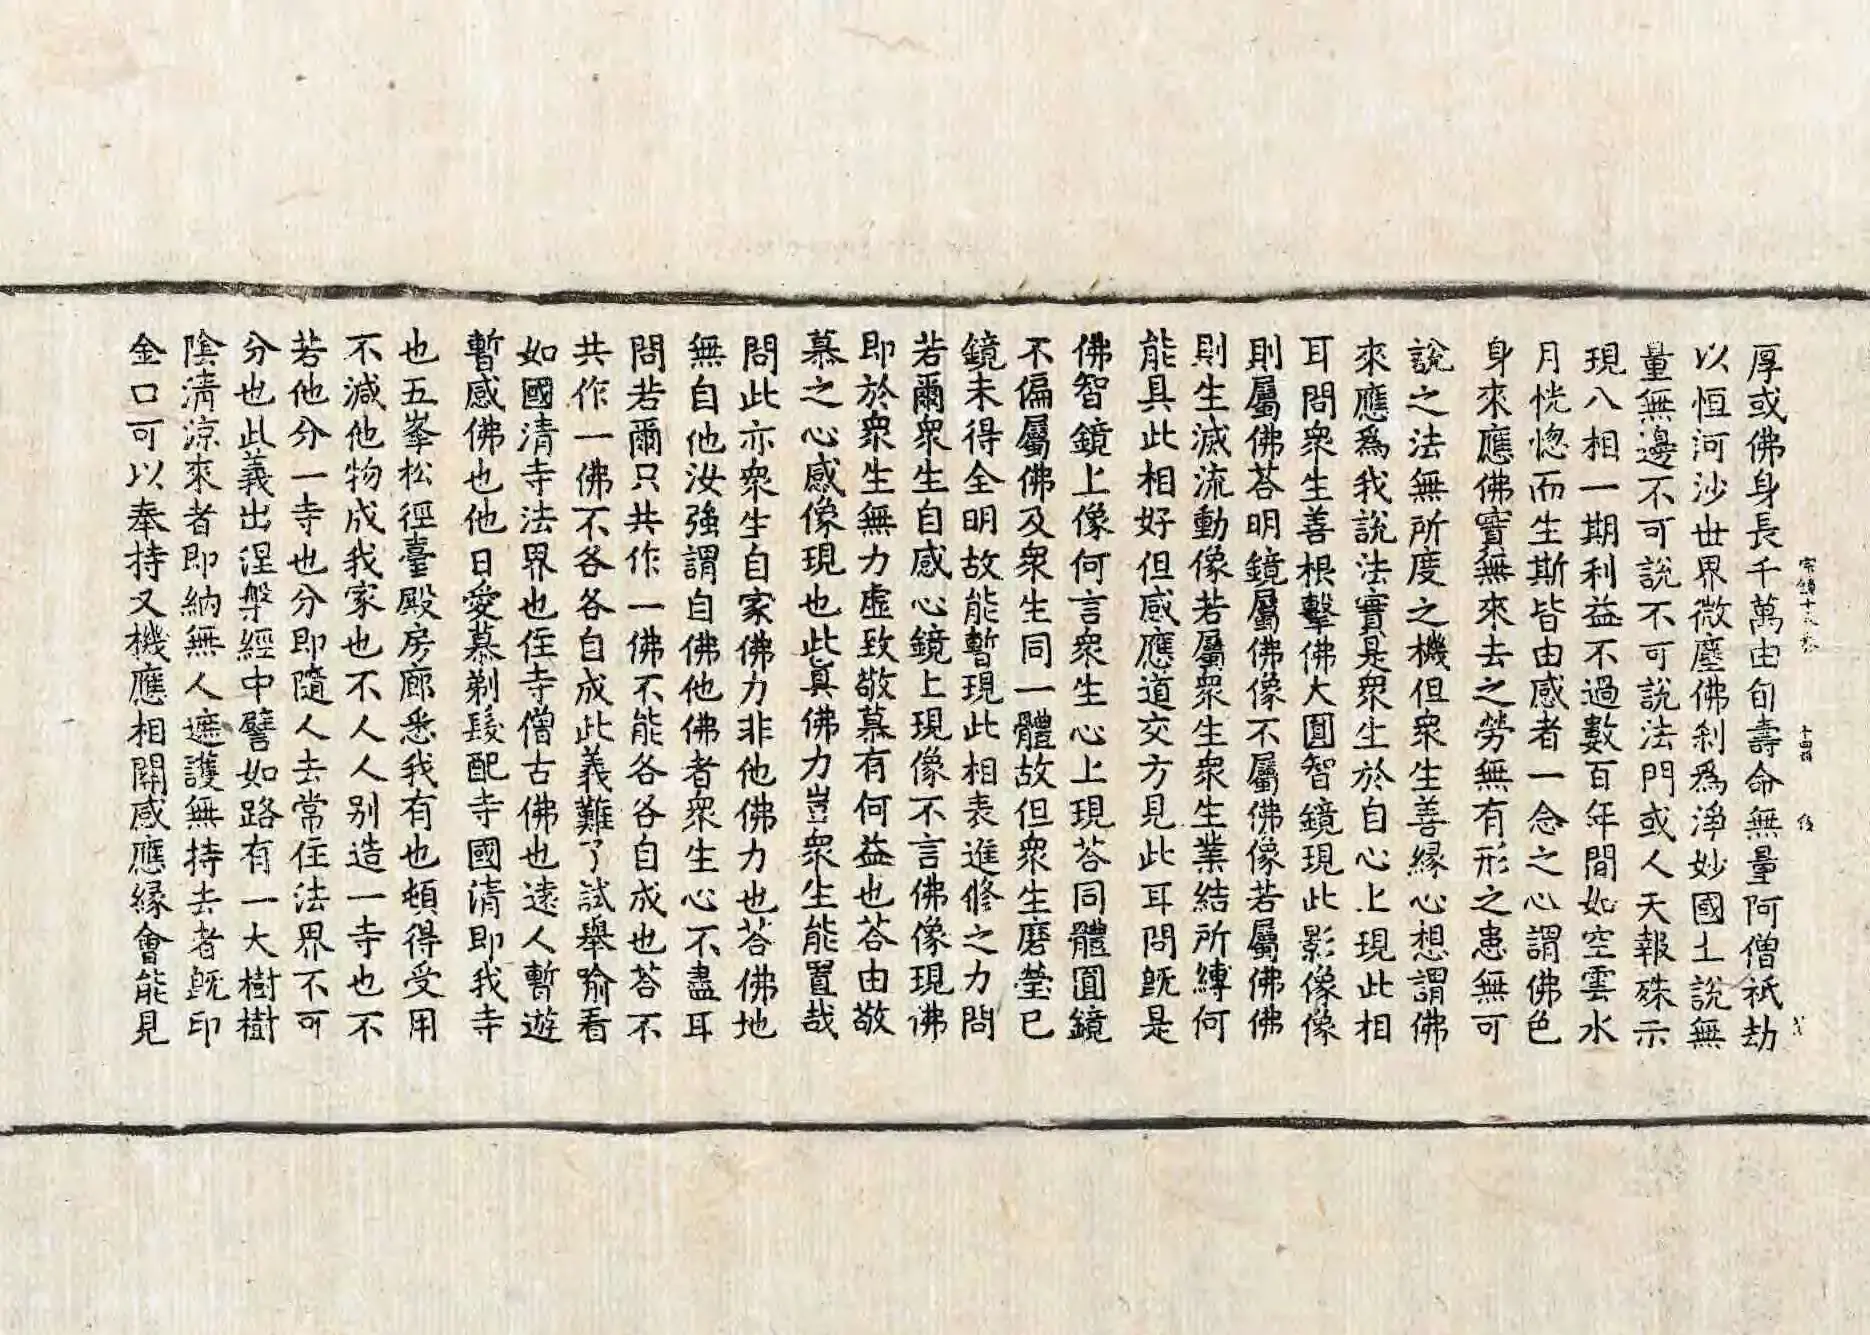 厚或佛身長千萬由旬壽命無量阿僧祇劫
以恒河沙世界微塵佛刹爲淨妙國土說無
量無邊不可說不可說法門或人天報殊示
現八相一期利益不過數百年間如空雲水
月恍惚而生斯皆由感者一念之心謂佛色
身來應佛實無來去之勞無有形之患無可
說之法無所度之機但衆生善緣心想謂佛
來應爲我說法實是衆生於自心上現此相
耳問衆生善根擊佛大圓智鏡現此影像像
則屬佛荅明鏡屬佛像不屬佛像若屬佛佛
則生滅流動像若屬衆生衆生業結所縛何
能具此相好但感應道交方見此耳問旣是
佛智鏡上像何言衆生心上現荅同體圓鏡
不偏屬佛及衆生同一體故但衆生磨瑩已
鏡未得全明故能暫現此相表進修之力問
若爾衆生自感心鏡上現像不言佛像現佛
即於衆生無力虛致敬慕有何益也荅由敬
慕之心感像現也此真佛力豈衆生能置哉
問此亦衆生自家佛力非他佛力也荅佛地
無自他汝強謂自佛他佛者衆生心不盡耳
問若爾只共作一佛不能各各自成也荅不
共作一佛不各各自成此義難了試舉喻看
如國清寺法界也住寺僧古佛也遠人暫遊
暫感佛也他日愛慕剃髮配寺國清即我寺
也五峯松徑臺殿房廊悉我有也頓得受用
不減他物成我家也不人人別造一寺也不
若他分一寺也分即隨人去常住法界不可
分也此義出涅槃經中譬如路有一大樹樹
陰清涼來者即納無人遮護無持去者旣印
金口可以奉持又機應相關感應緣會能見